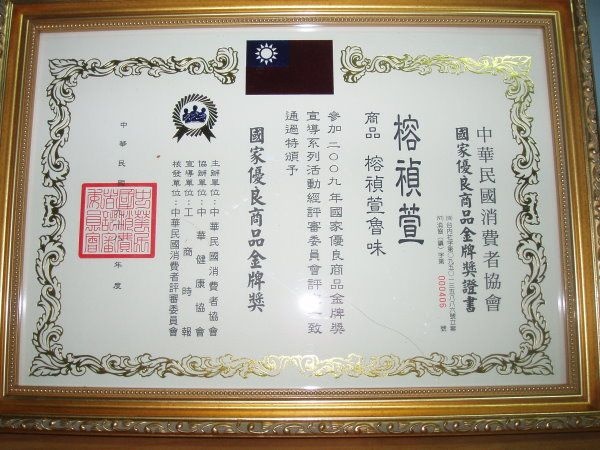 中華民國消費者協會
國家優良商品金牌獎證書
000406
號
榕禎萱
商品 榕禎萱魯味
參加二〇〇九年國家優良商品金牌獎
宣導系列活動經評審委員會評 一致
通過特頒予
國家優良商品金牌獎
主辦單位:中華民國消費者協會
協辦單位:中華健康協會
宣導單位:工商時報
核發單位:中華民國消費者評審委員會
中華民國 年度